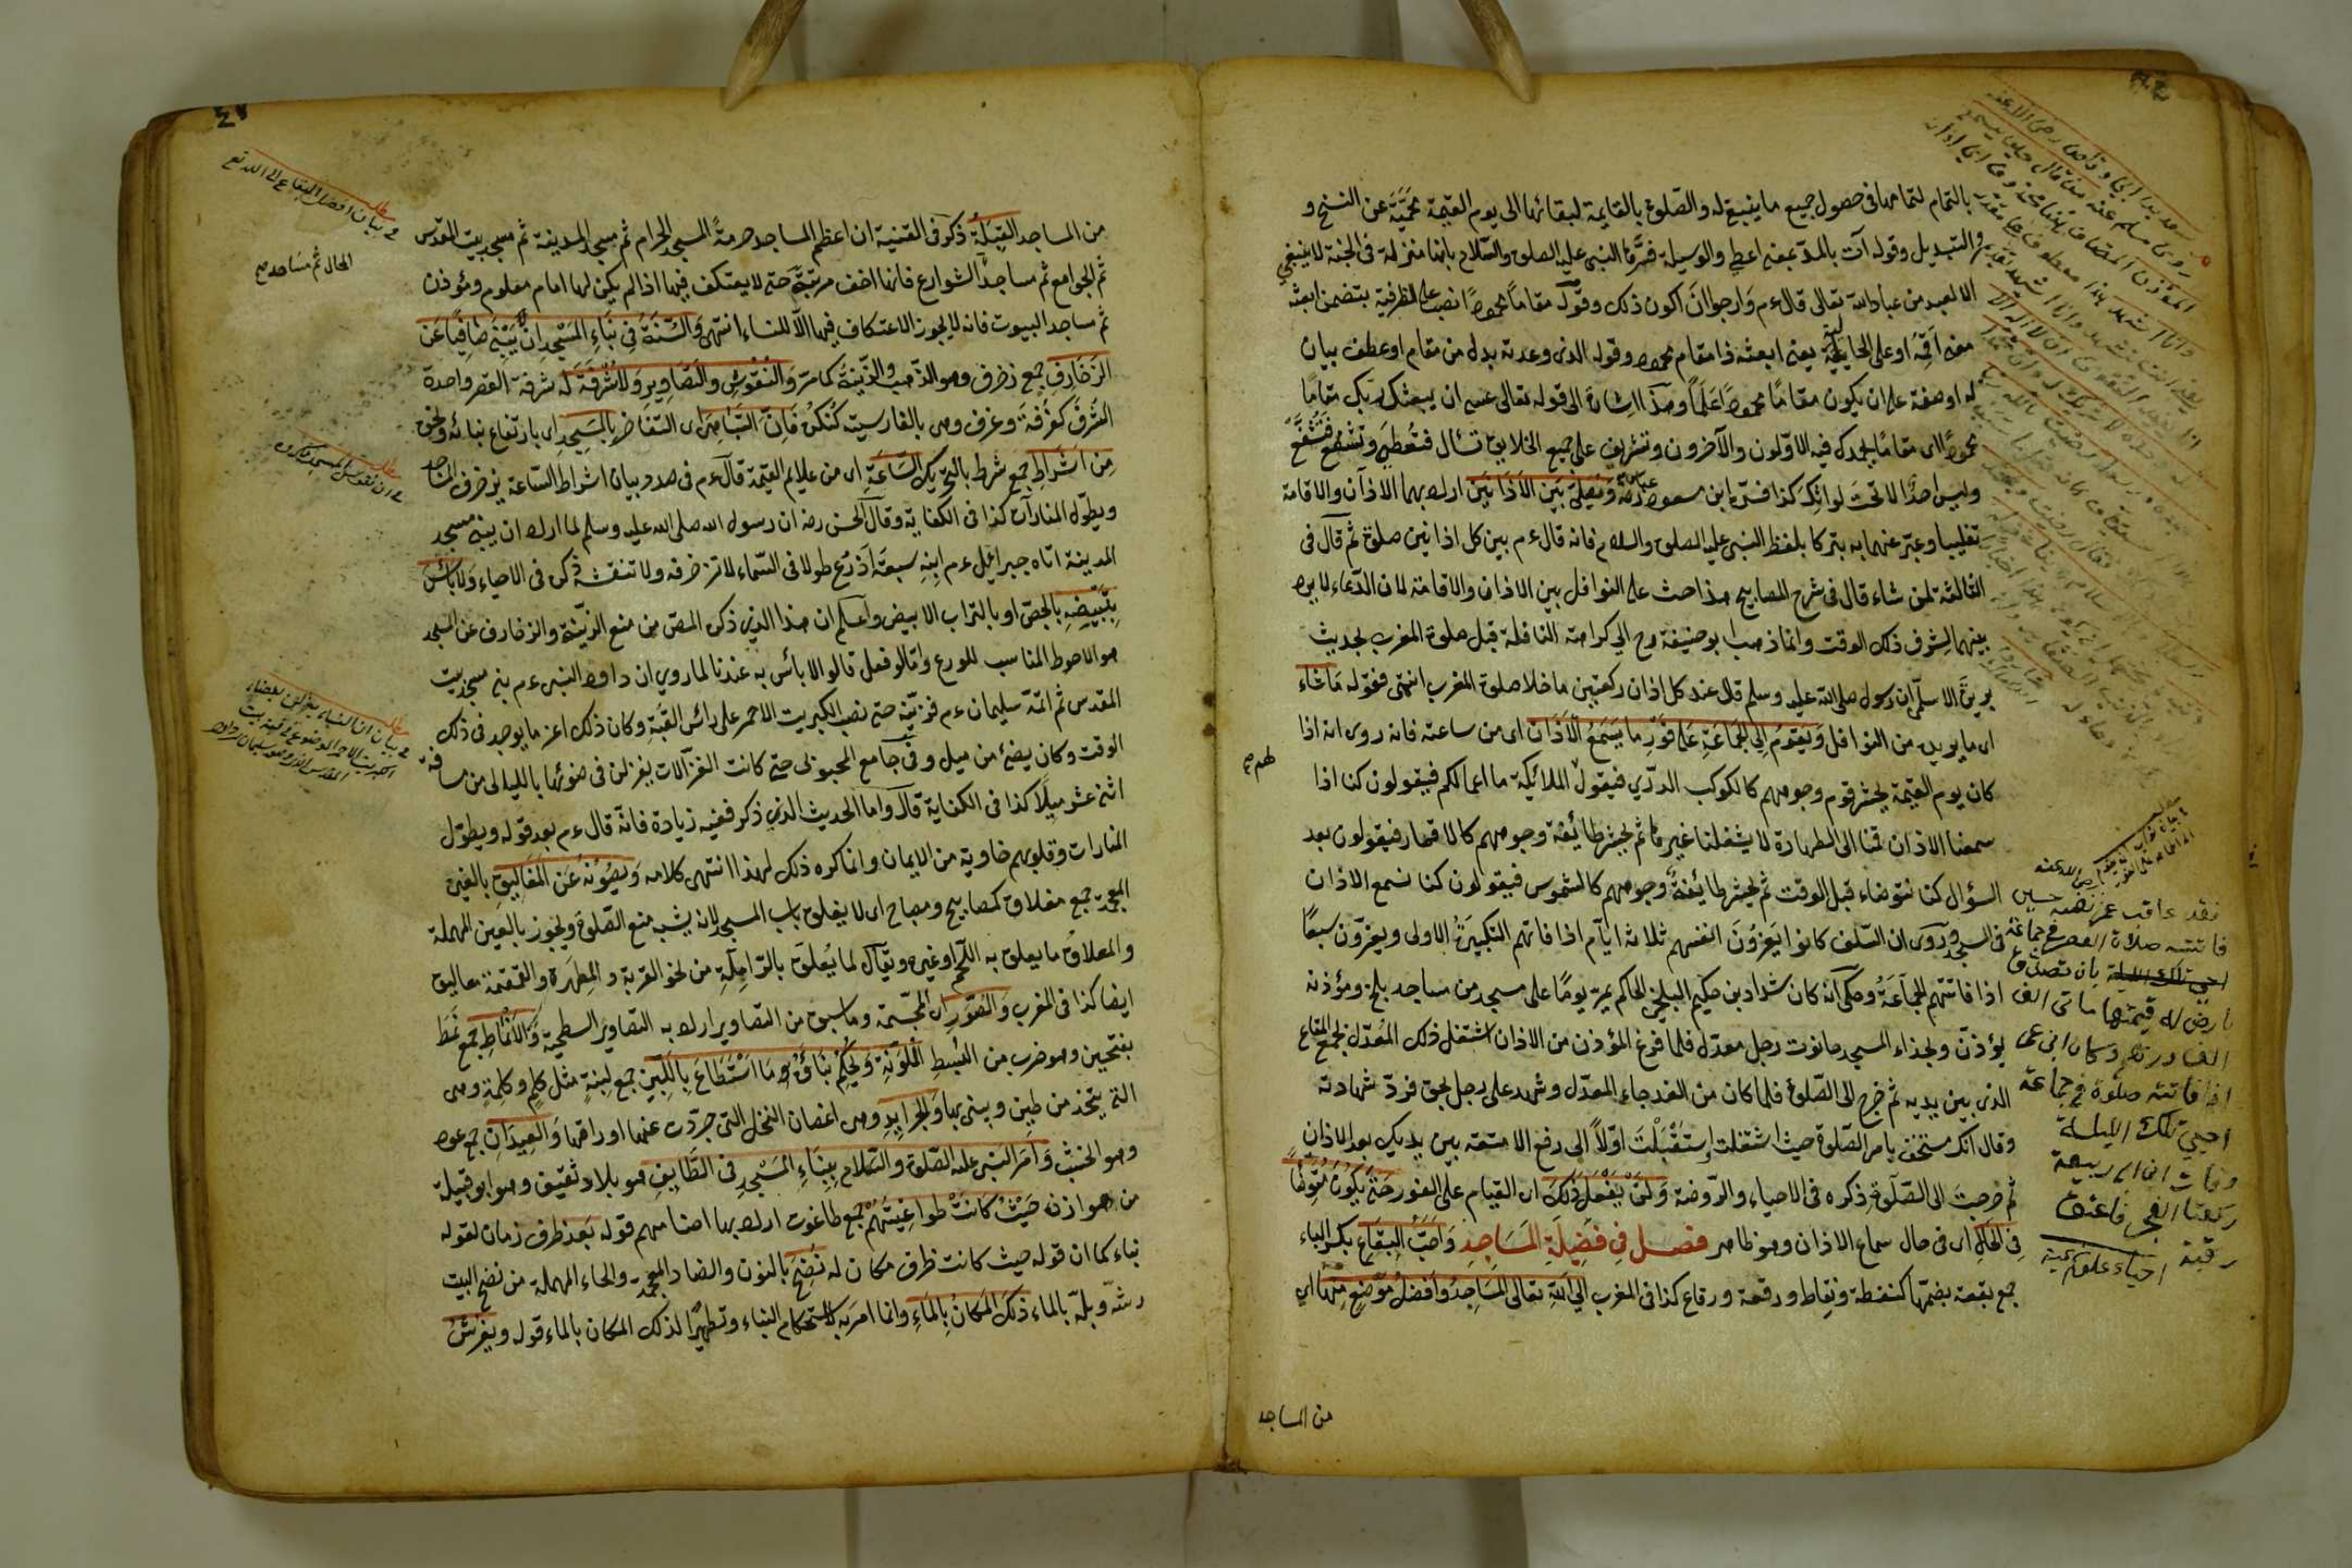 بالتمام لتمامها فى حصول جميع ما ينبغى له والصلوة بالقايمة لبقائها الى يوم القيمة محميّة عن النسخ و
والتبديل وقوله آت بالمدّ بمعنى اعطى والوسيلة فسّرها النبى عليه الصلوة والسّلام بانها منزلة فى الجنة لا ينبغى
الا لعبد من عباد الله تعالى قال ءم وارجوا ان اكون ذلك وقوله مقاماً محموداً نصب على الظرفية بتضمن ابعثه
معنى اقمه او على الحالية يعنى ابعثه ذا مقام محمود وقوله الذى وعدته بدل من مقام او عطف بيان
له او صفة على ان يكون مقامًا محمودًا عَلَمًا وهذا اشارة الى قوله تعالى عسى ان يبعثك ربك مقامًا
محمودًا اى مقامًا يحمدك فيه الاوّلون والآخرون وتشرف على جميع الخلايق تسأل فتعطى وتشفع فتشفّع
وليس احدٌ الا تحت لوائك كذا فسّره ابن عباس رضه وَيُصَلِّى بَيْنَ الاَذَانَيْنِ اراد بهما الاذان والاقامة
تغليبا وعبّر عنهما به تبركا بلفظ النبى عليه الصلوة والسلام فانه قال ءم بين كل اذانين صلوة ثم قال فى
الثالثة لمن شاء قال فى شرح المصابيح هذا حث على النوافل بين الاذان والاقامة لان الدّعاء لا يرد
بينهما لشرف ذلك الوقت وانما ذهب ابو حنيفة رح الى كراهة النافلة قبل صلوة المغرب لحديث
بريدة الاسلمى ان رسول صلى الله عليه وسلم قال عند كل اذان ركعتين ما خلا صلوة المغرب انتهى فقوله مَاشَاءَ
اى ما يريد من النوافل وَيَقُومُ اِلَى الْجَمَاعَةِ عَلَى فَوْرِ مَا يَسْمَعُ الْاَذَانَ اى من ساعته فانه روى انه اذا
كان يوم القيمة يحشر قوم وجوههم كالكوكب الدرّي فيقول الملائكة ما اعمالكم فيقولون كنا اذا
سمعنا الاذان قمنا الى الطهارة لا يشغلنا غيرها ثم يحشر طائفة وجوههم كالاقمار فيقولون بعد
السؤال كنا نتوضاء قبل الوقت ثم يحشر طايفةٌ وجوههم كالشموس فيقولون كنا نسمع الاذان
فى المسجد وروى ان السّلف كانوا يَعزّونَ انفسهم ثلاثة ايام اذا فاتهم التكبيرةُ الاولى ويعزّون سبعًا
اذا فاتتهم الجماعةُ وحكى انه كان شداد بن حكيم البلخى الحاكم يمرّ يومًا على مسجد من مساجد بلخ ومؤذنه
يؤذن وبحذاء المسجد حانوت رجل معدّل فلما فرغ المؤذن من الاذان اشتغل ذلك المُعدّل بجمع المتاع
الذى بين يديه ثم خرج الى الصّلوة فلما كان من الغد جاء المعدّل وشهد على رجل بحق فردّ شهادته
وقال انك مستخف بامر الصّلوة حيث اشتغلت اِستَقْبَلْتَ اوّلاً الى رفع الامتعة بين يديك بعد الاذان
ثم خرجت الى الصّلوة ذكره فى الاحياء والرّوضة وَلَنْ يَفْعَلَ ذَلِكَ اى القيام على الفور حَتَّى يَكُونَ مُتَوَضِّأً
فِى الْحَالِ اى فى حال سماع الاذان وهو ظاهر فصل فِى فَضِيلَةِ الْمَسَاجِدِ وَاَحَبُّ الْبِقَاعِ بكسر الباء
جمع بقعة بضمّها كنقطة ونقاط ورقعة ورقاع كذا فى المغرب اِلَى اللّهِ تعالى الْمَسَاجِدُ وَاَفْضَلُ مَوْضِعٍ مِنْهَا اى
من المساجد
فقد عاقب عمر نفسه حين
فاتته صلاة العصر فى جماعة
بان تصدق
بارض له قيمتها مأتى الف
الف درهم وكان ابن عمر
اذا فاتته صلوة فى جماعة
احيى تلك الليلة
وفات ابن ابى ربيعة
ركعتا الفجر فاعتق
رقبة
من المساجد القِبْلَةُ ذكر فى القنية ان اعظم المساجد حرمةً المسجد الحرام ثم مسجد المدينة ثم مسجد بيت المقدس
ثم الجوامع ثم مساجد الشوارع فانها اخف مرتبةً حتى لا يعتكف فيها اذا لم يكن لها امام معلوم ومؤذن
ثم مساجد البيوت فانه لا يجوز الاعتكاف فيها الّا للنساء انتهى وَالسُّنَّةُ فِى بِنَاءِ الْمَسْجِدِ اَنْ يُبْنَى صَافِيًا عَنِ
الزَّخَارِفِ جمع زخرف وهو الذّهب والزّينةُ كما مرّ وَالنُّقُوشِ وَالتَّصَاوِيرِ وَلَا شُرْفَةَ لَه شرفة القصر واحدة
الشُرَف كغُرْفة وغرف وهى بالفارسية كُنْكُرْ فَاِنَّ التَّبَاهِىَ اى التفاخر بِالْمَسْجِدِ اى بارتفاع بنائه ونحوه
مِنْ اَشْرَاطِ جمع شرط بالتحريك السَّاعَةِ اى من علايم القيمة قال ءم فى صدد بيان اشراط السّاعة يزخرف المساجد
ويطوّل المنارات كذا فى الكفاية وقال الحسن رضه ان رسول الله صلى الله عليه وسلم لما اراد ان يبنى مسجد
المدينة اتاه جبرائيل ءم ابنهِ سبعة اَذْرُعٍ طولا فى السّماء لا تزخرفه ولا تنقشه ذكره فى الاحياء وَلَا بَأْسَ
بِتَبْيِيضِهِ بالجصّ او بالتراب الابيض واعلم ان هذا الذى ذكره المصّ من منع الزينة والزخارف عن المسجد
هو الاحوط المناسب للورع وامّا لو فعل قالوا لا بأس به عندنا لما روى ان داود النبى ءم بنى مسجد بيت
المقدس ثم اتمّه سليمان ءم فزيّنه حتى نصب الكبريت الاحمر على رأس القبّة وكان ذلك اعز ما يوجد فى ذلك
الوقت وكان يضئ من ميل وفى جامع المحبوبى حتى كانت الغزّالات يغزلن فى ضوئها بالليالى من مسافة
اثنى عشر ميلًا كذا فى الكفاية قال واما الحديث الذى ذكر ففيه زيادة فانّه قال ءم بعد قوله ويطوّل
المنارات وقلوبهم خاوية من الايمان وانما كره ذلك لهذا انتهى كلامه وَيَصُونُهُ عَنِ الْمَغَالِيقِ بالغين
المعجمة جمع مغلاق كمصابيح ومصباح اى لا يغلق باب المسجد لانه يشبه منع الصّلوة ويجوز بالعين المهملة
والمعلاق ما يعلق به اللّحم او غيره ويقال لما يُعلّق بالزاملة من نحو القربة والمِطهرة والقمقمة معاليق
ايضا كذا فى المغرب وَالصُّوَرِ اى المجسّمة وما سبق من التصاوير اراد به التصاوير السطحية وَالْاَنْمَاطِ جمع نَمَط
بفتحتين وهو ضرب من البُسُط الملوّنة وَيُحْكِمُ بِنَائَهُ مَا اسْتَطَاعَ بِاللَّبِنِ جمع لبنةٍ مثل كَلِمٍ وكلمةٍ وهى
التى يتخذ من طين ويبنى بها وَالْجَرَايِدِ وهى اغصان النخل التى جرّدت عنها اوراقها وَالْعِيدَانِ جمع عود
وهو الخشب وَاَمَرَ النَّبِى عليه الصّلوة والسّلام بِبِنَاءِ الْمَسْجِدِ فى الطَّايِفِ هو بلاد ثقيف وهو ابو قبيلة
من هوازن حَيْثُ كَانَتْ طَوَاغِيتُهُمْ جمع طاغوت اراد بها اصنامهم قوله بَعْدَ ظرف زمان لقوله
بناء كما ان قوله حيث كانت ظرف مكان له نَضْحِ بالنون والضاد المعجمة والحاء المهملة من نضح البيت
رشّه وبلّه بالماء ذَلِكَ الْمَكَانِ بِالْمَاءِ وانما امر به لاستحكام البناء وتطهيرًا لذلك المكان بالماء قوله وَيَفْرُشُ
فى بيان افضل البقاع الى الله تع